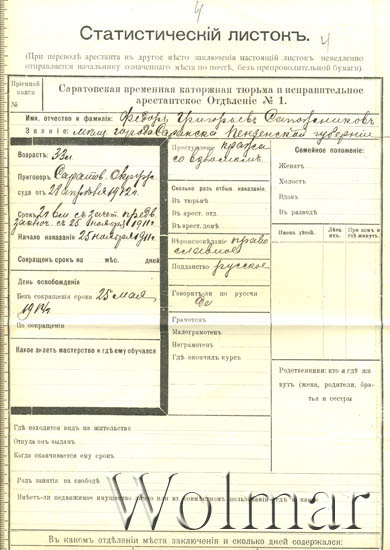 4
Статистическій листокъ. 4
(При переводѣ арестанта въ другое мѣсто заключенія настоящій листокъ немедленно
отправляется начальнику означеннаго мѣста по почтѣ, безъ препроводительной бумаги).
Пріемной
книги
№
Саратовская временная каторжная тюрьма и исправительное
арестантское Отдѣленіе № 1.
Имя, отчество и фамилія: Ѳедоръ Григорьевъ Сапожниковъ
Званіе: мѣщ. города Саранска Пензенской губерніи
Возрастъ: 33 л.
Приговоръ Саратов. Окруж.
суда отъ 21 апрѣля 1912 г.
Срокъ
заключ. съ 25 ноября 1911 г.
Начало наказанія 25 ноября 1911 г.
Сокращенъ срокъ на мѣс. дней
День освобожденія
Безъ сокращенія срока 25 мая
1914 г.
По сокращенія
Какое знаетъ мастерство и гдѣ ему обучался
Преступленіе кража
со взломом.
Сколько разъ отбыв. наказаніе.
Въ тюрьмѣ
Въ арест. отд.
Въ арест. домѣ
Вѣроисповѣданіе право
славное
Подданство русское
Говоритъ ли по русски
Да
Грамотенъ
Малограмотенъ
Неграмотенъ
Гдѣ окончилъ курсъ
Семейное положеніе:
Женатъ
Холостъ
Вдовъ
Въ разводѣ
Имена дѣтей. Лѣта ихъ. При комъ живутъ
Родственники: кто и гдѣ жи-
вутъ (жена, родители, бра-
тья и сестры
Гдѣ находится видъ на жительство
Откуда онъ выданъ
Когда оканчивается ему срокъ
Родъ занятія на свободѣ
Имѣетъ-ли недвижимое имущество
Wolmar
Въ какомъ отдѣленіи мѣста заключенія и сколько дней содержался: